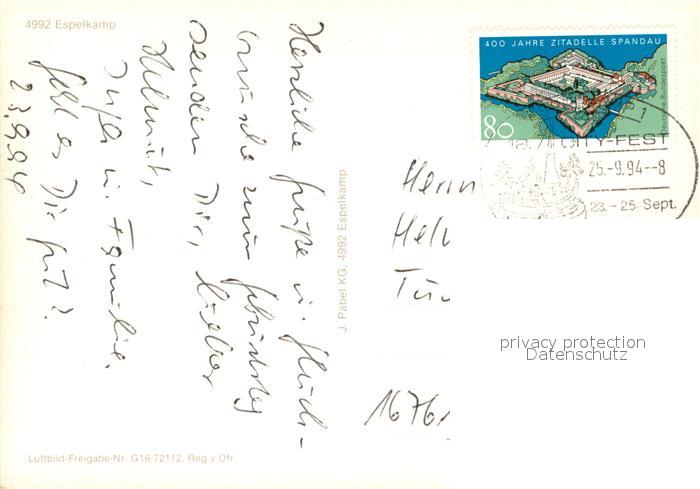 4992 Espelkamp
Herzliche Grüße u. Glück-
wünsche zum Geburtstag
senden Dir, lieber
Helmut,
Inge u. Familie.
Geht es Dir gut?
23.9.94
J. Pabel KG. 4992 Espelkamp
Luftbild-Freigabe-Nr. G16-72112, Reg.v.Ofr.
400 JAHRE ZITADELLE SPANDAU
Deutsche Bundespost
80
1
CITY-FEST
25.-9.94--8
23.-25. Sept.
Herrn
Hel
1676
privacy protection
Datenschutz